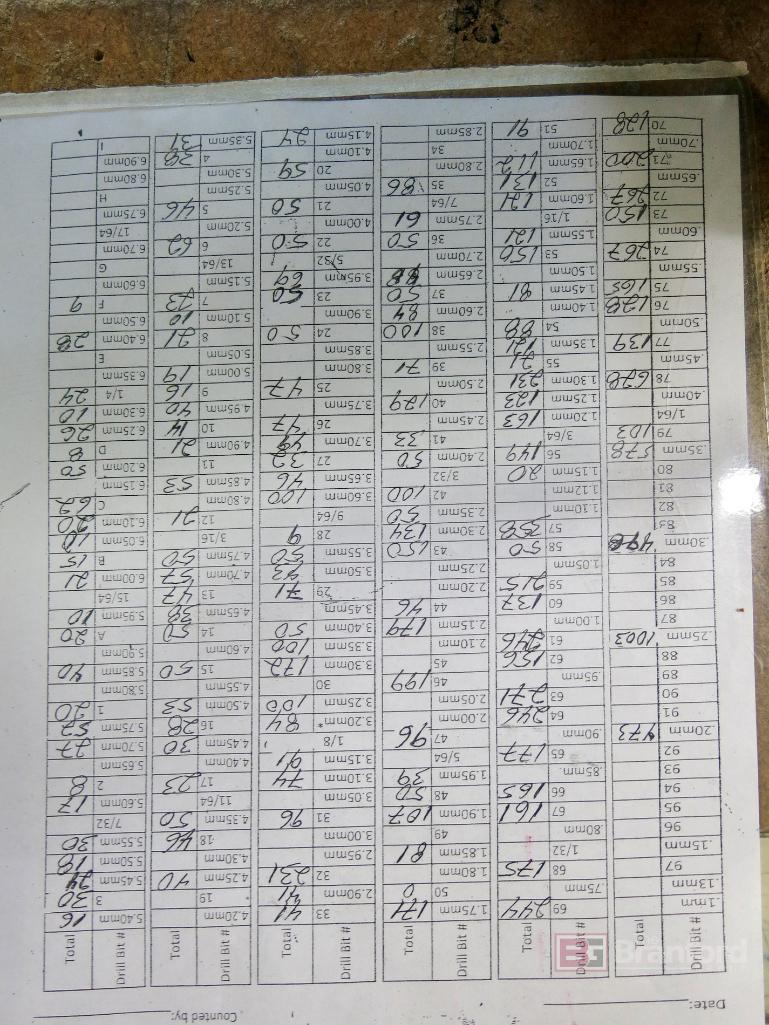 Date:
Counted by:
Drill Bit # Total
.1mm
.13mm
97
.15mm
96
95
94
93
92
.20mm 473
91
90
89
88
.25mm 1003
87
86
85
84
.30mm
83
82
81
80
.35mm 578
79 103
1/64
.40mm
78 678
.45mm
77 139
.50mm
76 128
75 165
.55mm
74 267
.60mm
73 150
72 267
.65mm
71 200
.70mm
70 128
Drill Bit # Total
69 244
.75mm
68 175
1/32
.80mm
67 161
66 165
.85mm
65 177
.90mm
64 246
63 271
.95mm
62 156
61 246
1.00mm
60 137
59 215
1.05mm
58 50
57 358
1.10mm
1.12mm
1.15mm 20
56 149
3/64
1.20mm 163
1.25mm 123
1.30mm 231
55 71
1.35mm 121
54 88
1.40mm
1.45mm 81
1.50mm
53 150
1.55mm 121
1/16
1.60mm 121
52 131
1.65mm 112
1.70mm
51 91
Drill Bit # Total
1.75mm 171
50 0
1.80mm
1.85mm 81
49
1.90mm 107
48 50
1.95mm 39
5/64
47 96
2.00mm
2.05mm
46 199
45
2.10mm
2.15mm 179
44 46
2.20mm
2.25mm
43 150
2.30mm 134
2.35mm 50
42 100
3/32
2.40mm 50
41 33
2.45mm
40 129
2.50mm
39 71
2.55mm
38 100
2.60mm 84
37 50
2.65mm
2.70mm
36 50
2.75mm 61
7/64
35 86
2.80mm
34
2.85mm
Drill Bit # Total
33 41
2.90mm 41
32 231
2.95mm
3.00mm
31 96
3.05mm
3.10mm 74
3.15mm 91
1/8
3.20mm* 84
3.25mm 100
30
3.30mm 172
3.35mm 100
3.40mm 50
3.45mm
29 71
3.50mm 43
3.55mm 50
28 9
9/64
3.60mm 100
3.65mm 46
27 32
3.70mm 49
26 47
3.75mm
25 47
3.80mm
3.85mm
24 50
3.90mm
23 50
3.95mm 69
5/32
22 50
4.00mm
21 50
4.05mm
20 59
4.10mm
4.15mm 24
Drill Bit # Total
4.20mm
19
4.25mm 40
4.30mm
18 46
4.35mm 50
11/64
17 23
4.40mm
4.45mm 30
16 28
4.50mm 53
4.55mm
15 50
4.60mm
14 50
4.65mm 38
13 47
4.70mm 57
4.75mm 50
3/16
12 21
4.80mm
4.85mm 53
11
4.90mm 21
10 14
4.95mm 40
9 16
5.00mm 19
5.05mm
8 21
5.10mm 10
7 23
5.15mm
13/64
6 62
5.20mm
5 46
5.25mm
5.30mm
4 38
5.35mm 31
Drill Bit # Total
5.40mm 16
3 30
5.45mm 24
5.50mm 18
5.55mm 30
7/32
5.60mm 17
2 8
5.65mm
5.70mm 27
5.75mm 52
1 20
5.80mm
5.85mm 40
5.90mm
A 20
5.95mm 10
15/64
6.00mm 21
B 15
6.05mm 10
6.10mm 20
C 62
6.15mm
6.20mm 50
D 8
6.25mm 26
6.30mm 10
1/4 24
6.35mm
E
6.40mm 28
6.50mm
F 9
6.60mm
G
6.70mm
17/64
6.75mm
H
6.80mm
6.90mm
I
BG Branford